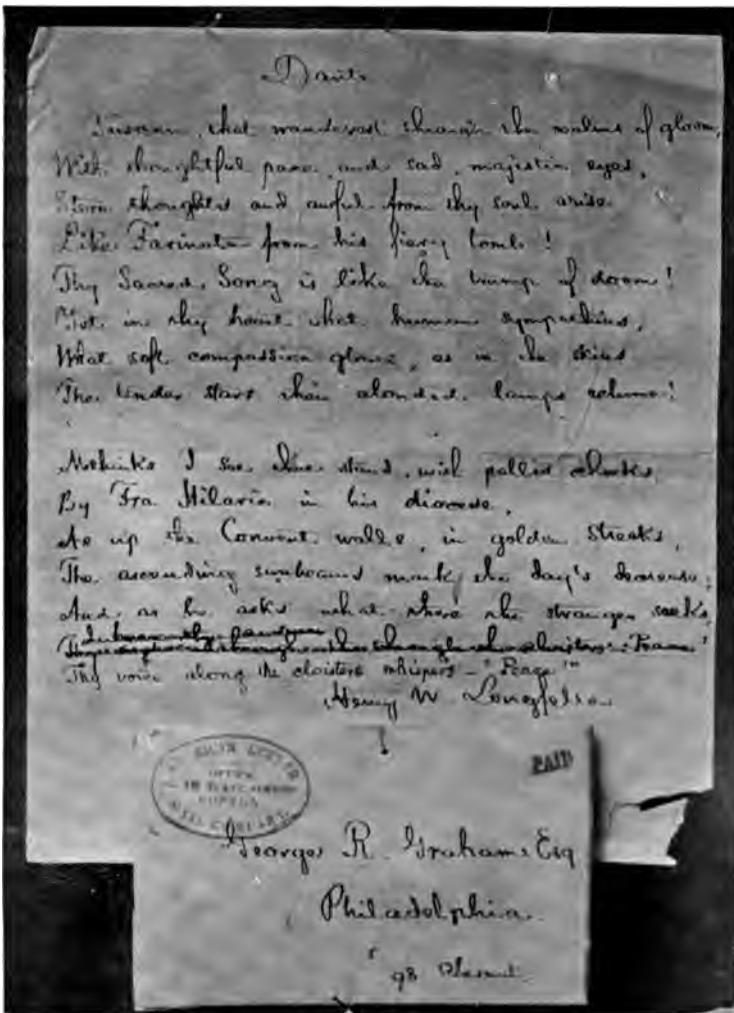 Dante
Tuscan, that wanderest through the realms of gloom,
With thoughtful pace, and sad, majestic eyes,
Stern thoughts and awful from thy soul arise
Like Farinata from his fiery tomb!
Thy Sacred Song is like the trump of doom!
Yet in thy heart what human sympathies,
What soft compassion glows, as in the skies
The tender stars their clouded lamps relume!
Methinks I see thee stand, with pallid cheeks,
By Fra Hilario in his diocese,
As up the Convent walls, in golden streaks,
The ascending sunbeams mark the day's decrease;
And, as he asks what there the stranger seeks
through the cloisters "Peace!"
Thy voice along the cloisters whispers - "Peace!"
Henry W. Longfellow
AMERICAN LETTER
OFFICE
MAIL COMPANY
PAID
George R. Graham Esq
Philadelphia
98 Chesnut